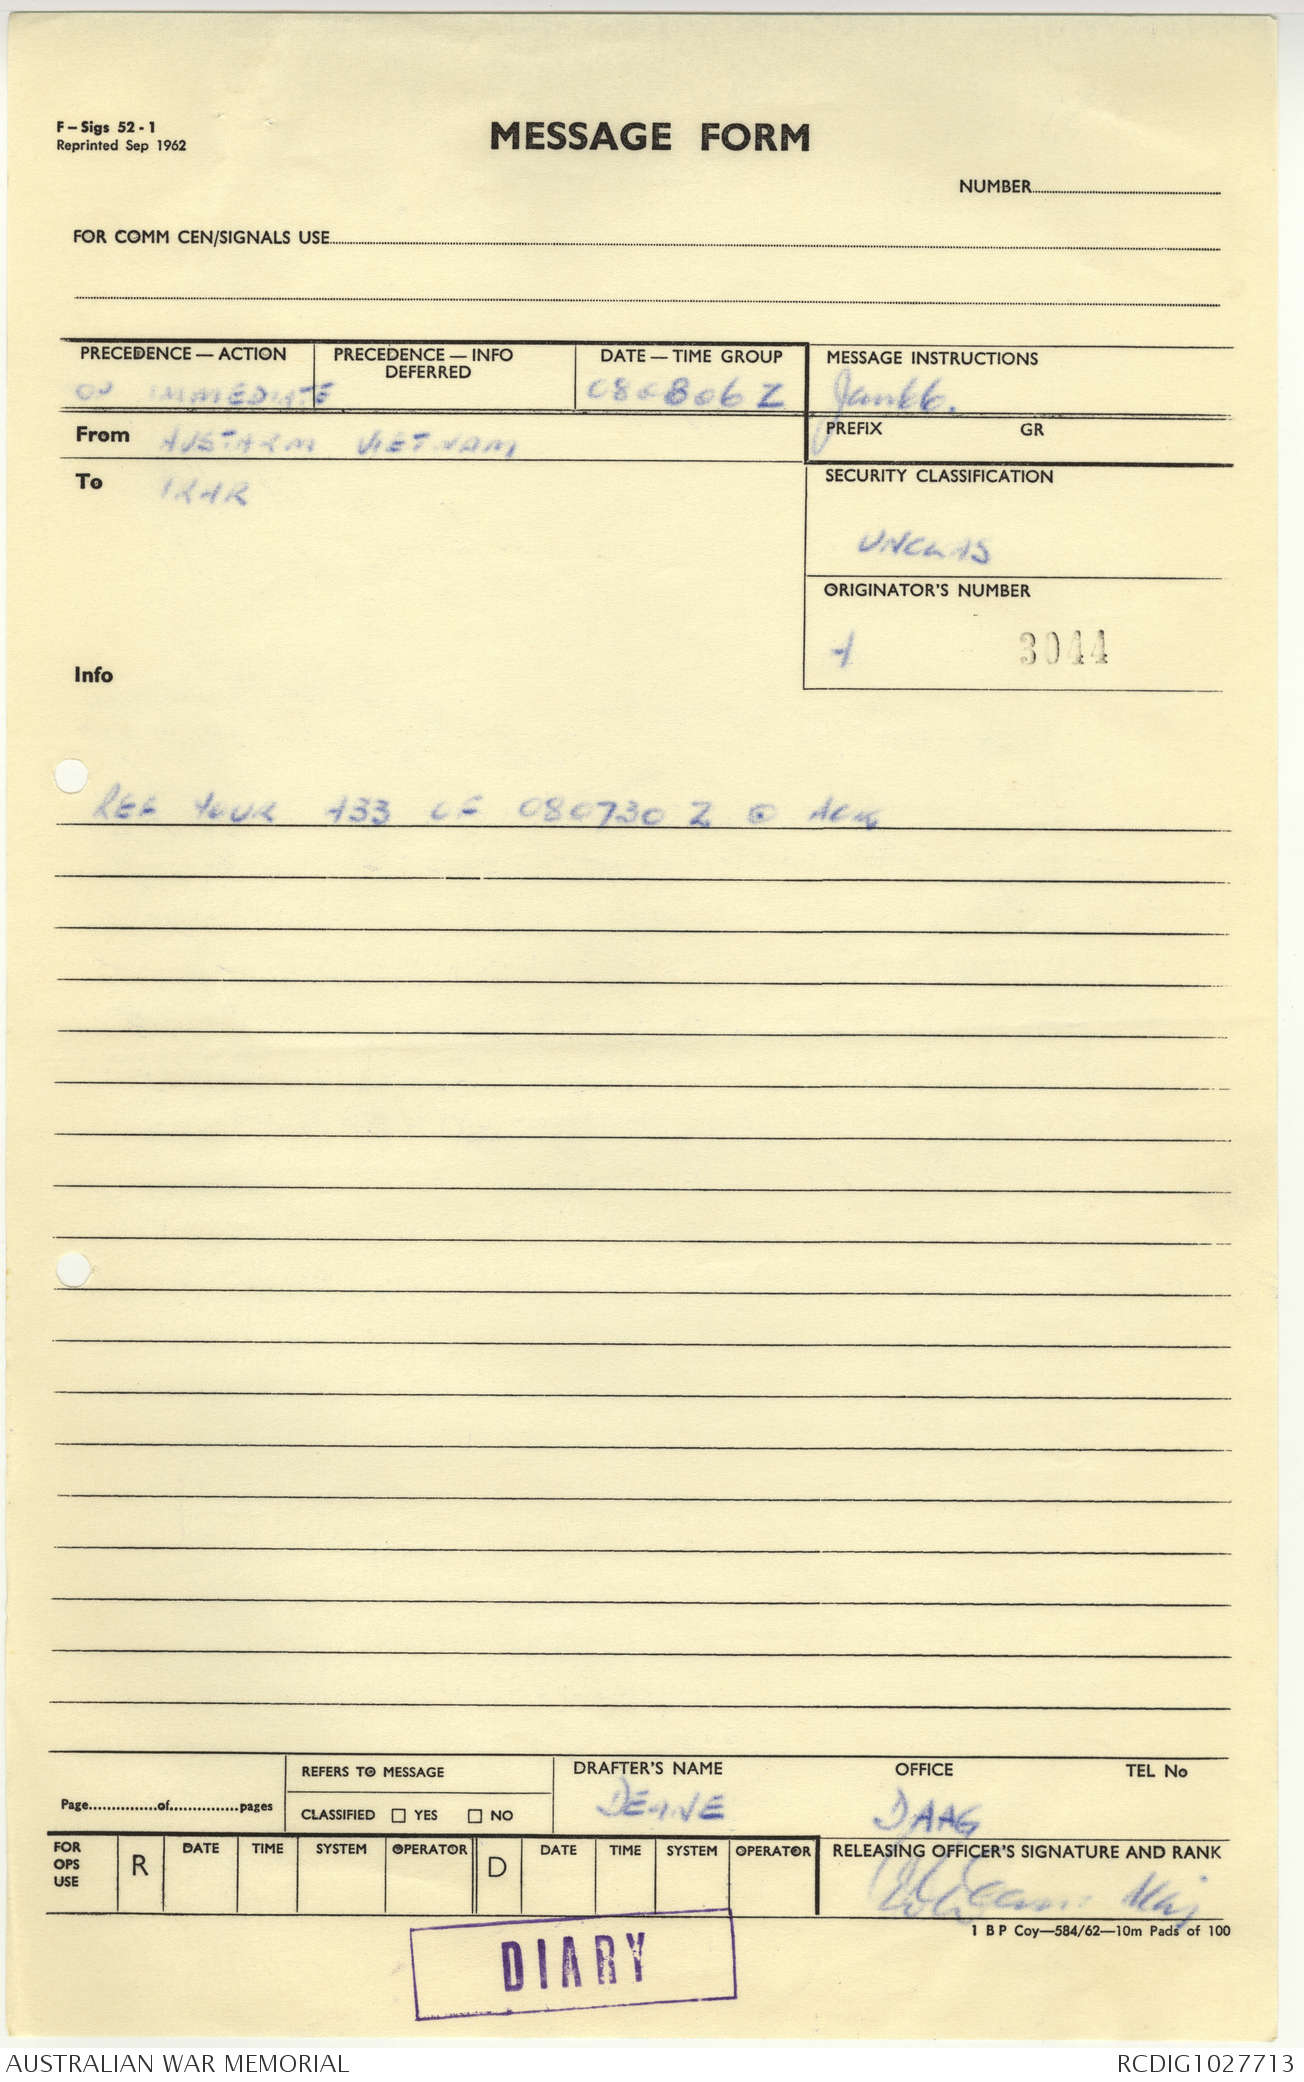 F – Sigs 52 - 1
Reprinted Sep 1962
MESSAGE FORM
NUMBER
FOR COMM CEN/SIGNALS USE
PRECEDENCE — ACTION
PRECEDENCE — INFO
DEFERRED
DATE — TIME GROUP
MESSAGE INSTRUCTIONS
OP IMMEDIATE
080806 Z
Jan 66.
From AUSTARM VIETNAM
PREFIX GR
To 1RAR
SECURITY CLASSIFICATION
UNCLAS
ORIGINATOR'S NUMBER
A 3044
Info
REF YOUR A33 OF 080730 Z ⊙ ACK
REFERS TO MESSAGE
DRAFTER'S NAME
OFFICE
TEL No
Page...............of...............pages
CLASSIFIED □ YES □ NO
DEANE
DAAG
FOR OPS USE
R
DATE TIME SYSTEM OPERATOR
D
DATE TIME SYSTEM OPERATOR
RELEASING OFFICER'S SIGNATURE AND RANK
Maj
1 B P Coy—584/62—10m Pads of 100
DIARY
AUSTRALIAN WAR MEMORIAL
RCDIG1027713